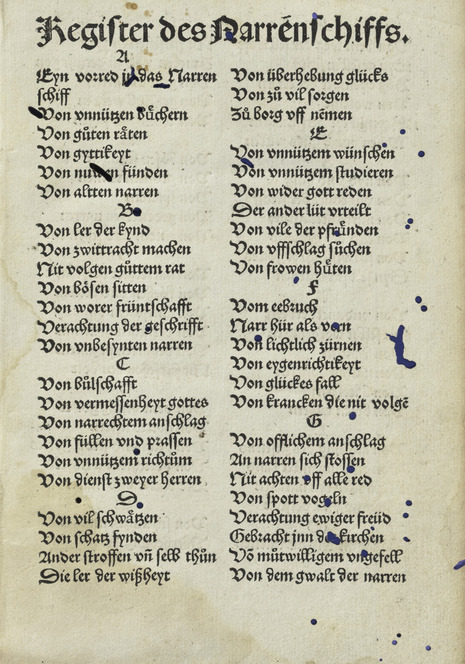 Register des Narrēnschiffs.
A
Eyn vorred jn das Narren
schiff
Von vnnützen bůchern
Von gůten råten
Von gyttikeyt
Von fünden
Von altten narren
B
Von ler der kynd
Von zwittracht machen
Nit volgen gůttem rat
Von bösen sitten
Von worer früntschafft
Verachtung der geschrifft
Von vnbesynten narren
C
Von bůlschafft
Von vermessenheyt gottes
Von narrechtem anschlag
Von füllen vnd prassen
Von vnnützem richtům
Von dienst zweyer herren
D
Von vil schwätzen
Von schatz fynden
Ander stroffen vñ selb thůn
Die ler der wißheyt
Von überhebung glücks
Von zů vil sorgen
Zů borg vff nemen
E
Von vnnützem wünschen
Von vnnützem studieren
Von wider gott reden
Der ander lüt vrteilt
Von vile der pfründen
Von vffschlag sůchen
Von frowen hůten
F
Vom eebruch
Narr hür als vern
Von lichtlich zürnen
Von eygenrichtikeyt
Von glückes fall
Von krancken die nit volgē
G
Von offlichem anschlag
An narren sich stossen
Nit achten vff alle red
Von spott vogeln
Verachtung ewiger freüd
Gebracht jnn der kirchen
Vō můtwilligem vngefell
Von dem gwalt der narren